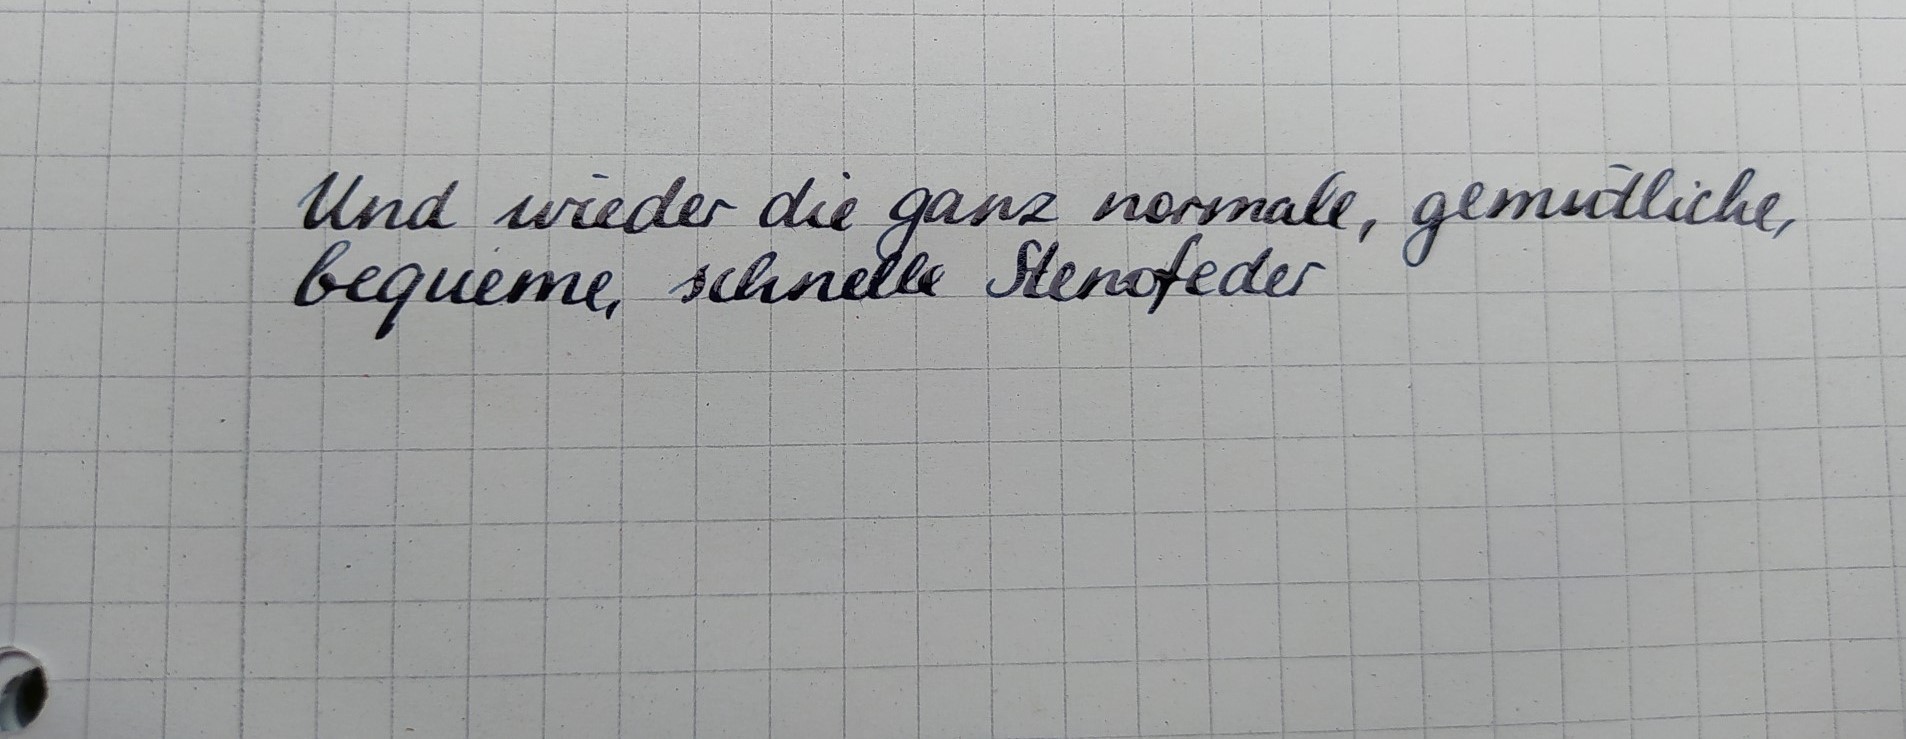 Und wieder die ganz normale, gemütliche,
bequeme, schnelle Stenofeder